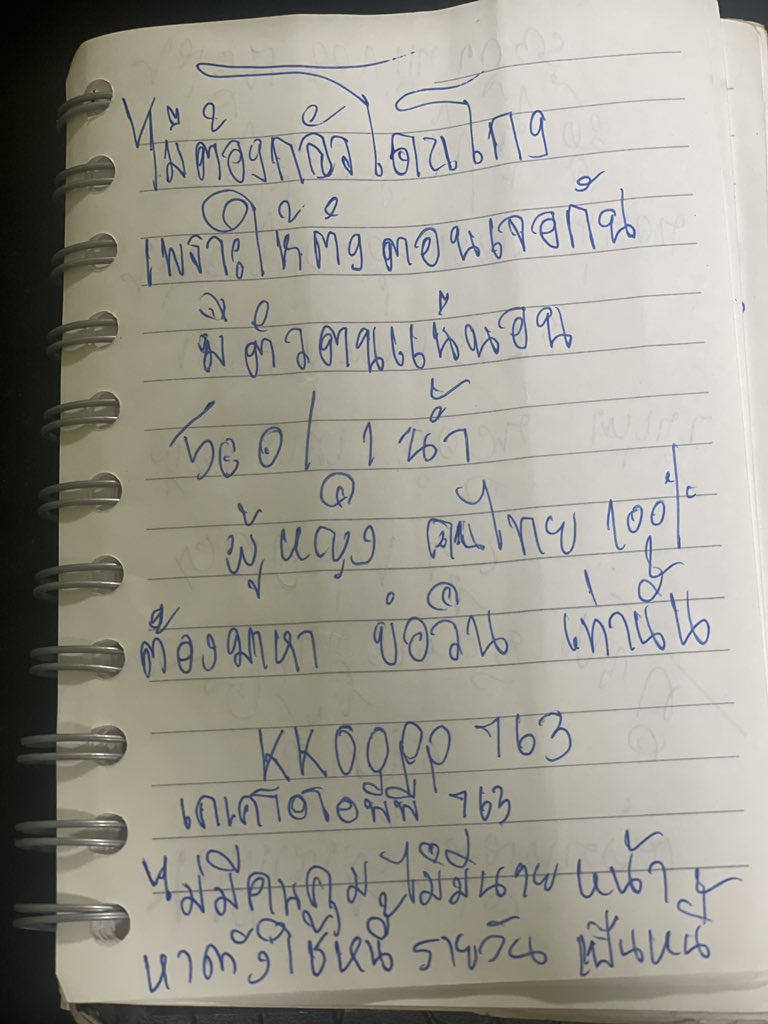 ไม่ต้องกลัวโดนโกง
เพราะให้ตังตอนเจอกัน
มีตัวตนแน่นอน
1 น้ำ
ผู้หญิง คนไทย 100%
ต้องมาหา บ่อวิน เท่านั้น
KKOOPP 763
เคเคโอโอพีพี 763
ไม่มีคนคุม ไม่มีนายหน้า
หาตังใช้หนี้ รายวัน เป็นหนี้